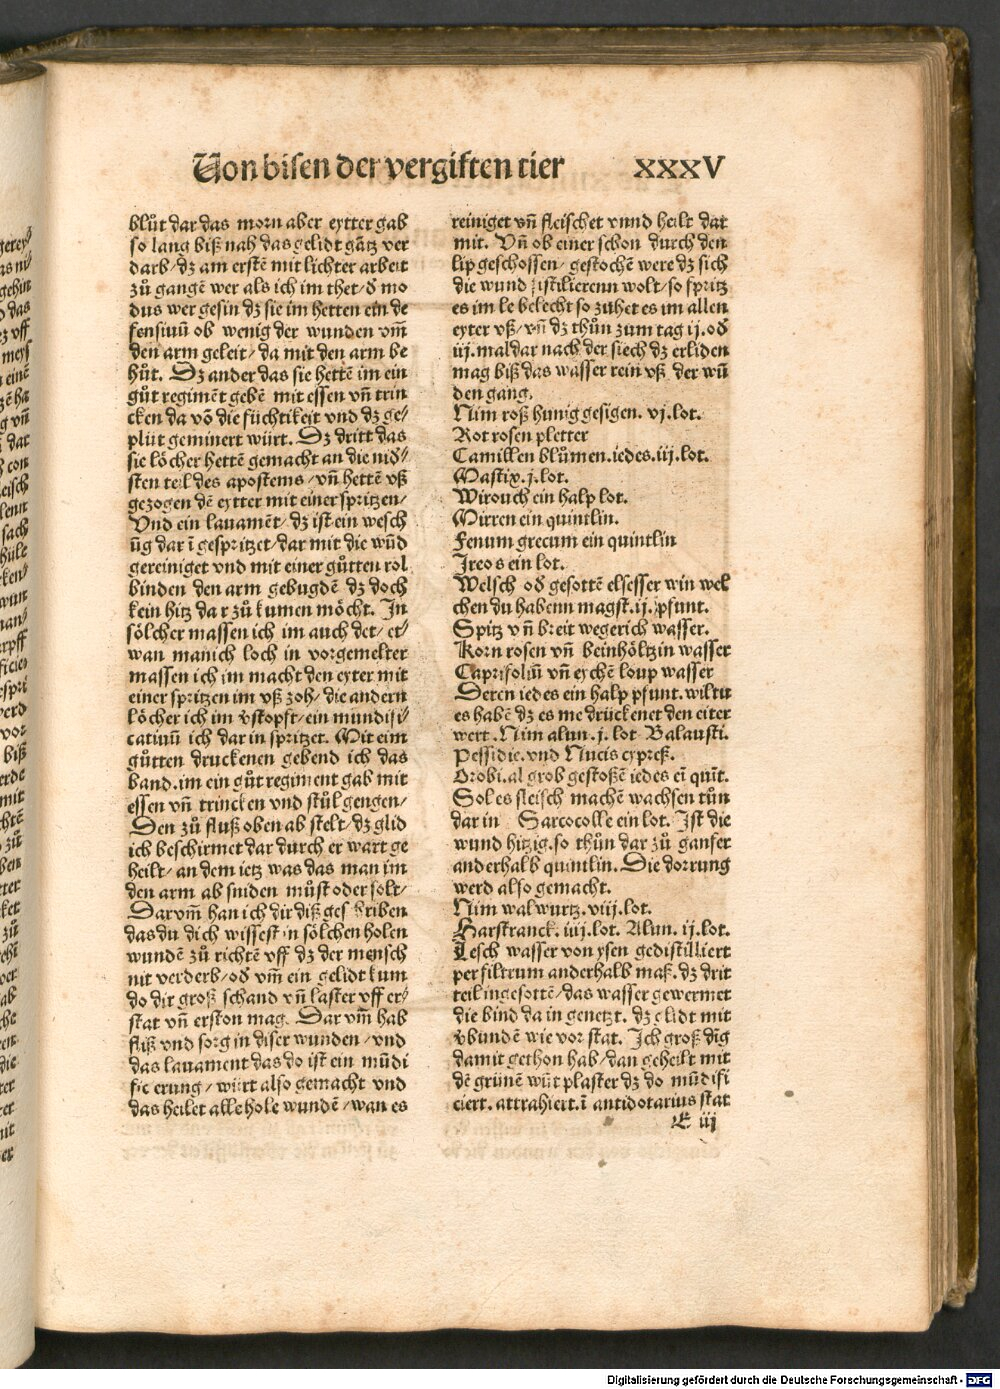 Von bisen der vergiften tier XXXV
blůt dar das morn aber eytter gab
so lang biß nah das gelidt gātz ver
darb/dz am erstē mit lichter arbeit
zů gangē wer als ich im thet/d̄ mo
dus wer gesin dz sie im hetten ein de
fensiuū ob wenig der wunden vm̄
den arm geleit/da mit den arm be
hůt. Dz ander das sie hettē im ein
gůt regimēt gebē mit essen vn̄ trin
cken da vō die füchtikeit vnd dz ge/
plüt geminert würt. Dz dritt das
sie löcher hettē gemacht an die nid/
sten teil des apostems/vn̄ hettē vß
gezogen dē eytter mit einer spritzen/
Vnd ein lauamēt/dz ist ein wesch
ūg dar ī gespritzet/dar mit die wūd
gereiniget vnd mit einer gůtten rol
binden den arm gebugdē dz doch
kein hitz dar zů kumen möcht. In
sölcher massen ich im auch det/et/
wan manich loch in vorgemelter
massen ich im macht den eyter mit
einer spritzen im vß zoh/die andern
löcher ich im v̄stopft/ein mundifi/
catiuū ich dar in spritzet. Mit eim
gůtten druckenen gebend ich das
band.im ein gůt regiment gab mit
essen vn̄ trincken vnd stůl gengen/
Den zů fluß oben ab stelt/dz glid
ich beschirmet dar durch er wart ge
heilt/an dem ietz was das man im
den arm ab sniden můst oder solt/
Darvm̄ han ich dir diß geschriben
das du dich wissest in sölchen holen
wundē zů richtē vff dz der mensch
nit verderb/od̄ vm̄ ein gelidt kum
do dir groß schand vn̄ laster vff er/
stat vn̄ erston mag. Dar vm̄ hab
fliß vnd sorg in diser wunden/vnd
das lauament das do ist ein mūdi
fic erung/würt also gemacht vnd
das heilet alle hole wundē/wan es
reiniget vn̄ fleischet vnnd heilt dar
mit. Vn̄ ob einer schon durch den
lip geschossen/gestochē were dz sich
die wund fistilierenn wolt/so spritz
es im le belecht so zuhet es im allen
eyter vß/vn̄ dz thůn zum tag ij.od̄
iij.mal dar nach der siech dz erliden
mag biß das wasser rein vß der wū
den gang.
Nim roß hunig gesigen. vj.lot.
Rot rosen pletter
Camillen blůmen.iedes.iij.lot.
Mastix.j.lot.
Wirouch ein halp lot.
Mirren ein quintlin.
Fenum grecum ein quintlin
Ireos ein lot.
Welsch od̄ gesottē elsesser win wel
chen du habenn magst.ij.pfunt.
Spitz vn̄ breit wegerich wasser.
Korn rosen vn̄ beinhöltzin wasser
Caprifoliū vn̄ eychē loup wasser
Deren iedes ein halp pfunt.wiltu
es habē dz es me drückenet den eiter
wert.Nim alun.j.lot Balausti.
Pessidie.vnd Nucis cypreß.
Orobi.al grob gestoßē iedes eī quīt.
Sol es fleisch machē wachsen tůn
dar in Sarcocolle ein lot. Ist die
wund hitzig.so thůn dar zů ganfer
anderhalb quintlin. Die dorrung
werd also gemacht.
Nim walwurtz.viij.lot.
Harstranck.iiij.lot. Alun.ij.lot.
Lesch wasser von ysen gedistilliert
per filtrum anderhalb maß.dz drit
teil ingesottē/das wasser gewermet
die bind da in genetzt.dz glidt mit
v̄bundē wie vor stat. Ich groß dīg
damit gethon hab/dan geheilt mit
dē grünē wūt plaster dz do mūdifi
ciert.attrahiert.ī antidotarius stat
E iij
Digitalisierung gefördert durch die Deutsche Forschungsgemeinschaft - DFG